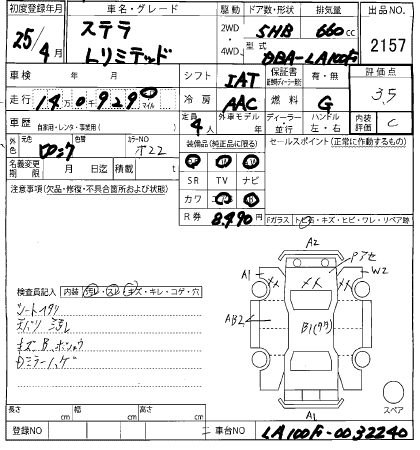 初度登録年月 車名・グレード 駆動 ドア数・形状 排気量 出品NO.
25/4月 ステラ Lリミテッド 2WD・4WD 5HB 660cc 2157
型式 DBA-LA100F
車検 年 月 シフト IAT 保証書 有・無 評価点 3.5
走行 14万0千929 マイル 冷房 AAC 燃料 G
車歴 自家用・レンタ・事業用( ) 定員 4人 外車モデル 年 ディーラー・並行 ハンドル 左・右 内装評価 C
外色 元色 色替 カラーNO
装備品(純正品に限る) セールスポイント(正常に作動するもの)
名義変更期限 月 日迄 積載 t
SR TV ナビ
注意事項(欠品・修復・不具合箇所および状態)
カワ
R券 8,490円
Fガラス トビ石・キズ・ヒビ・ワレ・リペア跡
A2
A1 メメ メメ W2
検査員記入 内装 ヨゴレ・スレ・キズ・キレ・コゲ・穴
シートイタリ
AB2
キズB.ボショウ
DミラーハゲA1
スペア
長さ cm 幅 cm 高さ cm
登録NO 車台NO LA100F-0032240